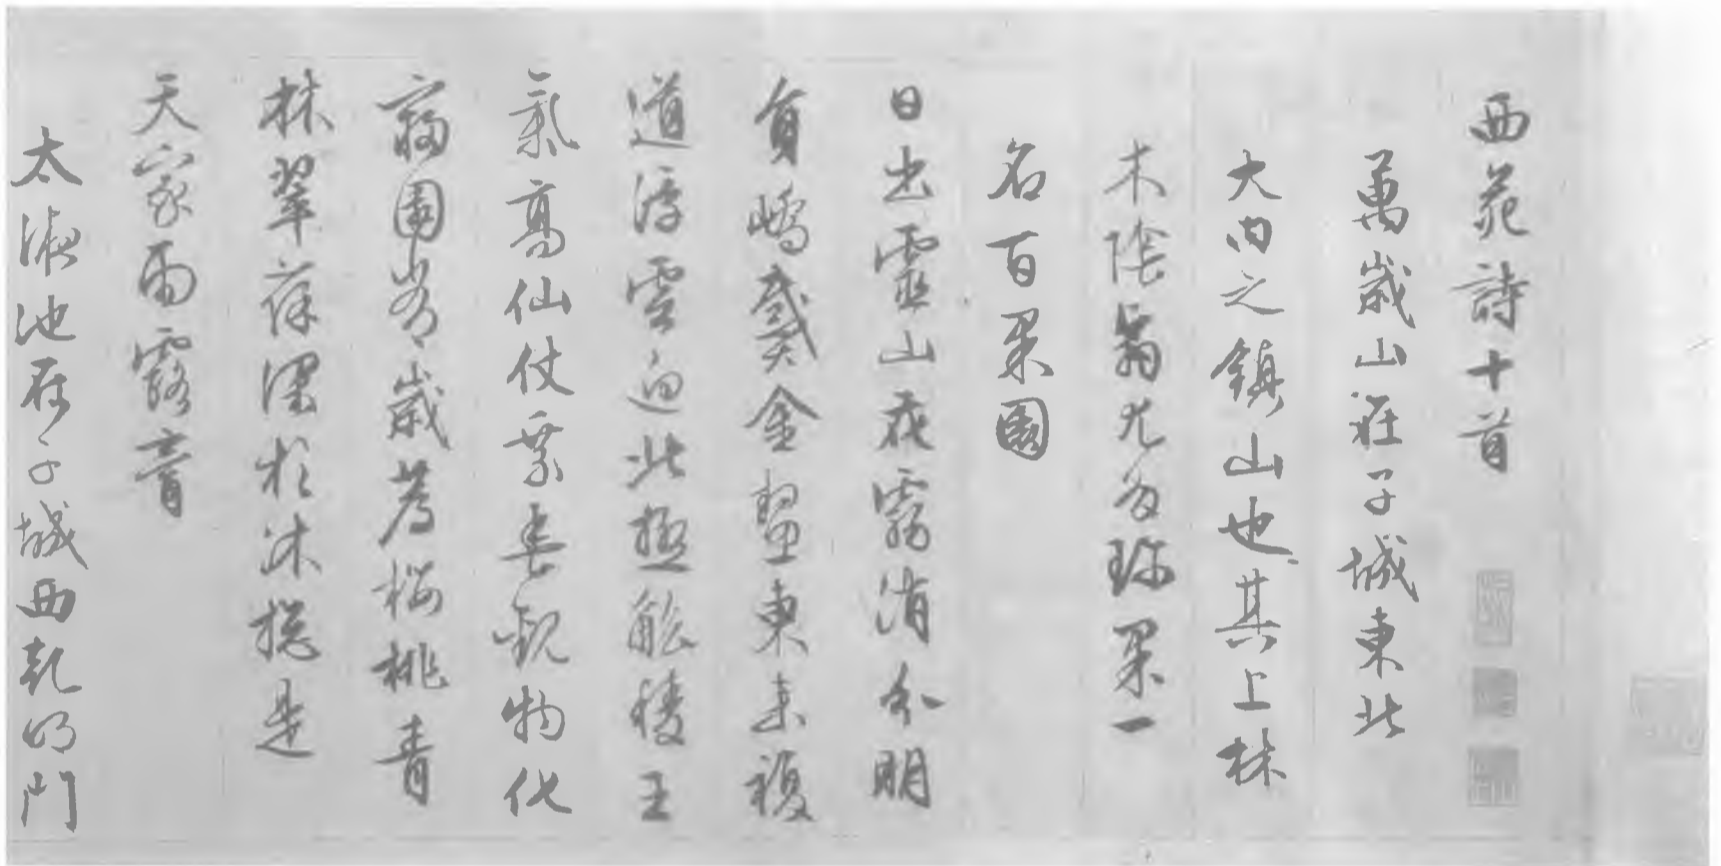 西苑詩十首
萬歲山在子城東北
大内之鎮山也其上林
木陰翳尤多珍果一
名百果園
日出靈山花霧消分明
員嶠戴金鰲東來複
道浮雲迥北極觚稜王
氣高仙仗乘春觀物化
寢園常歲薦櫻桃青
林翠葆深於沐總是
天家雨露膏
太液池在子城西乾明門